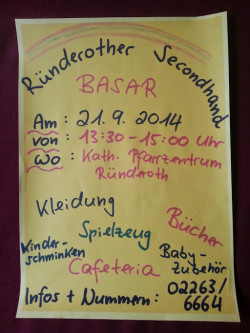 Ründerother Secondhand
BASAR
Am : 21.9.2014
von : 13:30 - 15:00 Uhr
wo : Kath. Pfarrzentrum
Ründeroth
Kleidung
Bücher
Spielzeug
Kinder-
schminken
Baby-
Zubehör
Cafeteria
Infos + Nummern: 02263/
6664